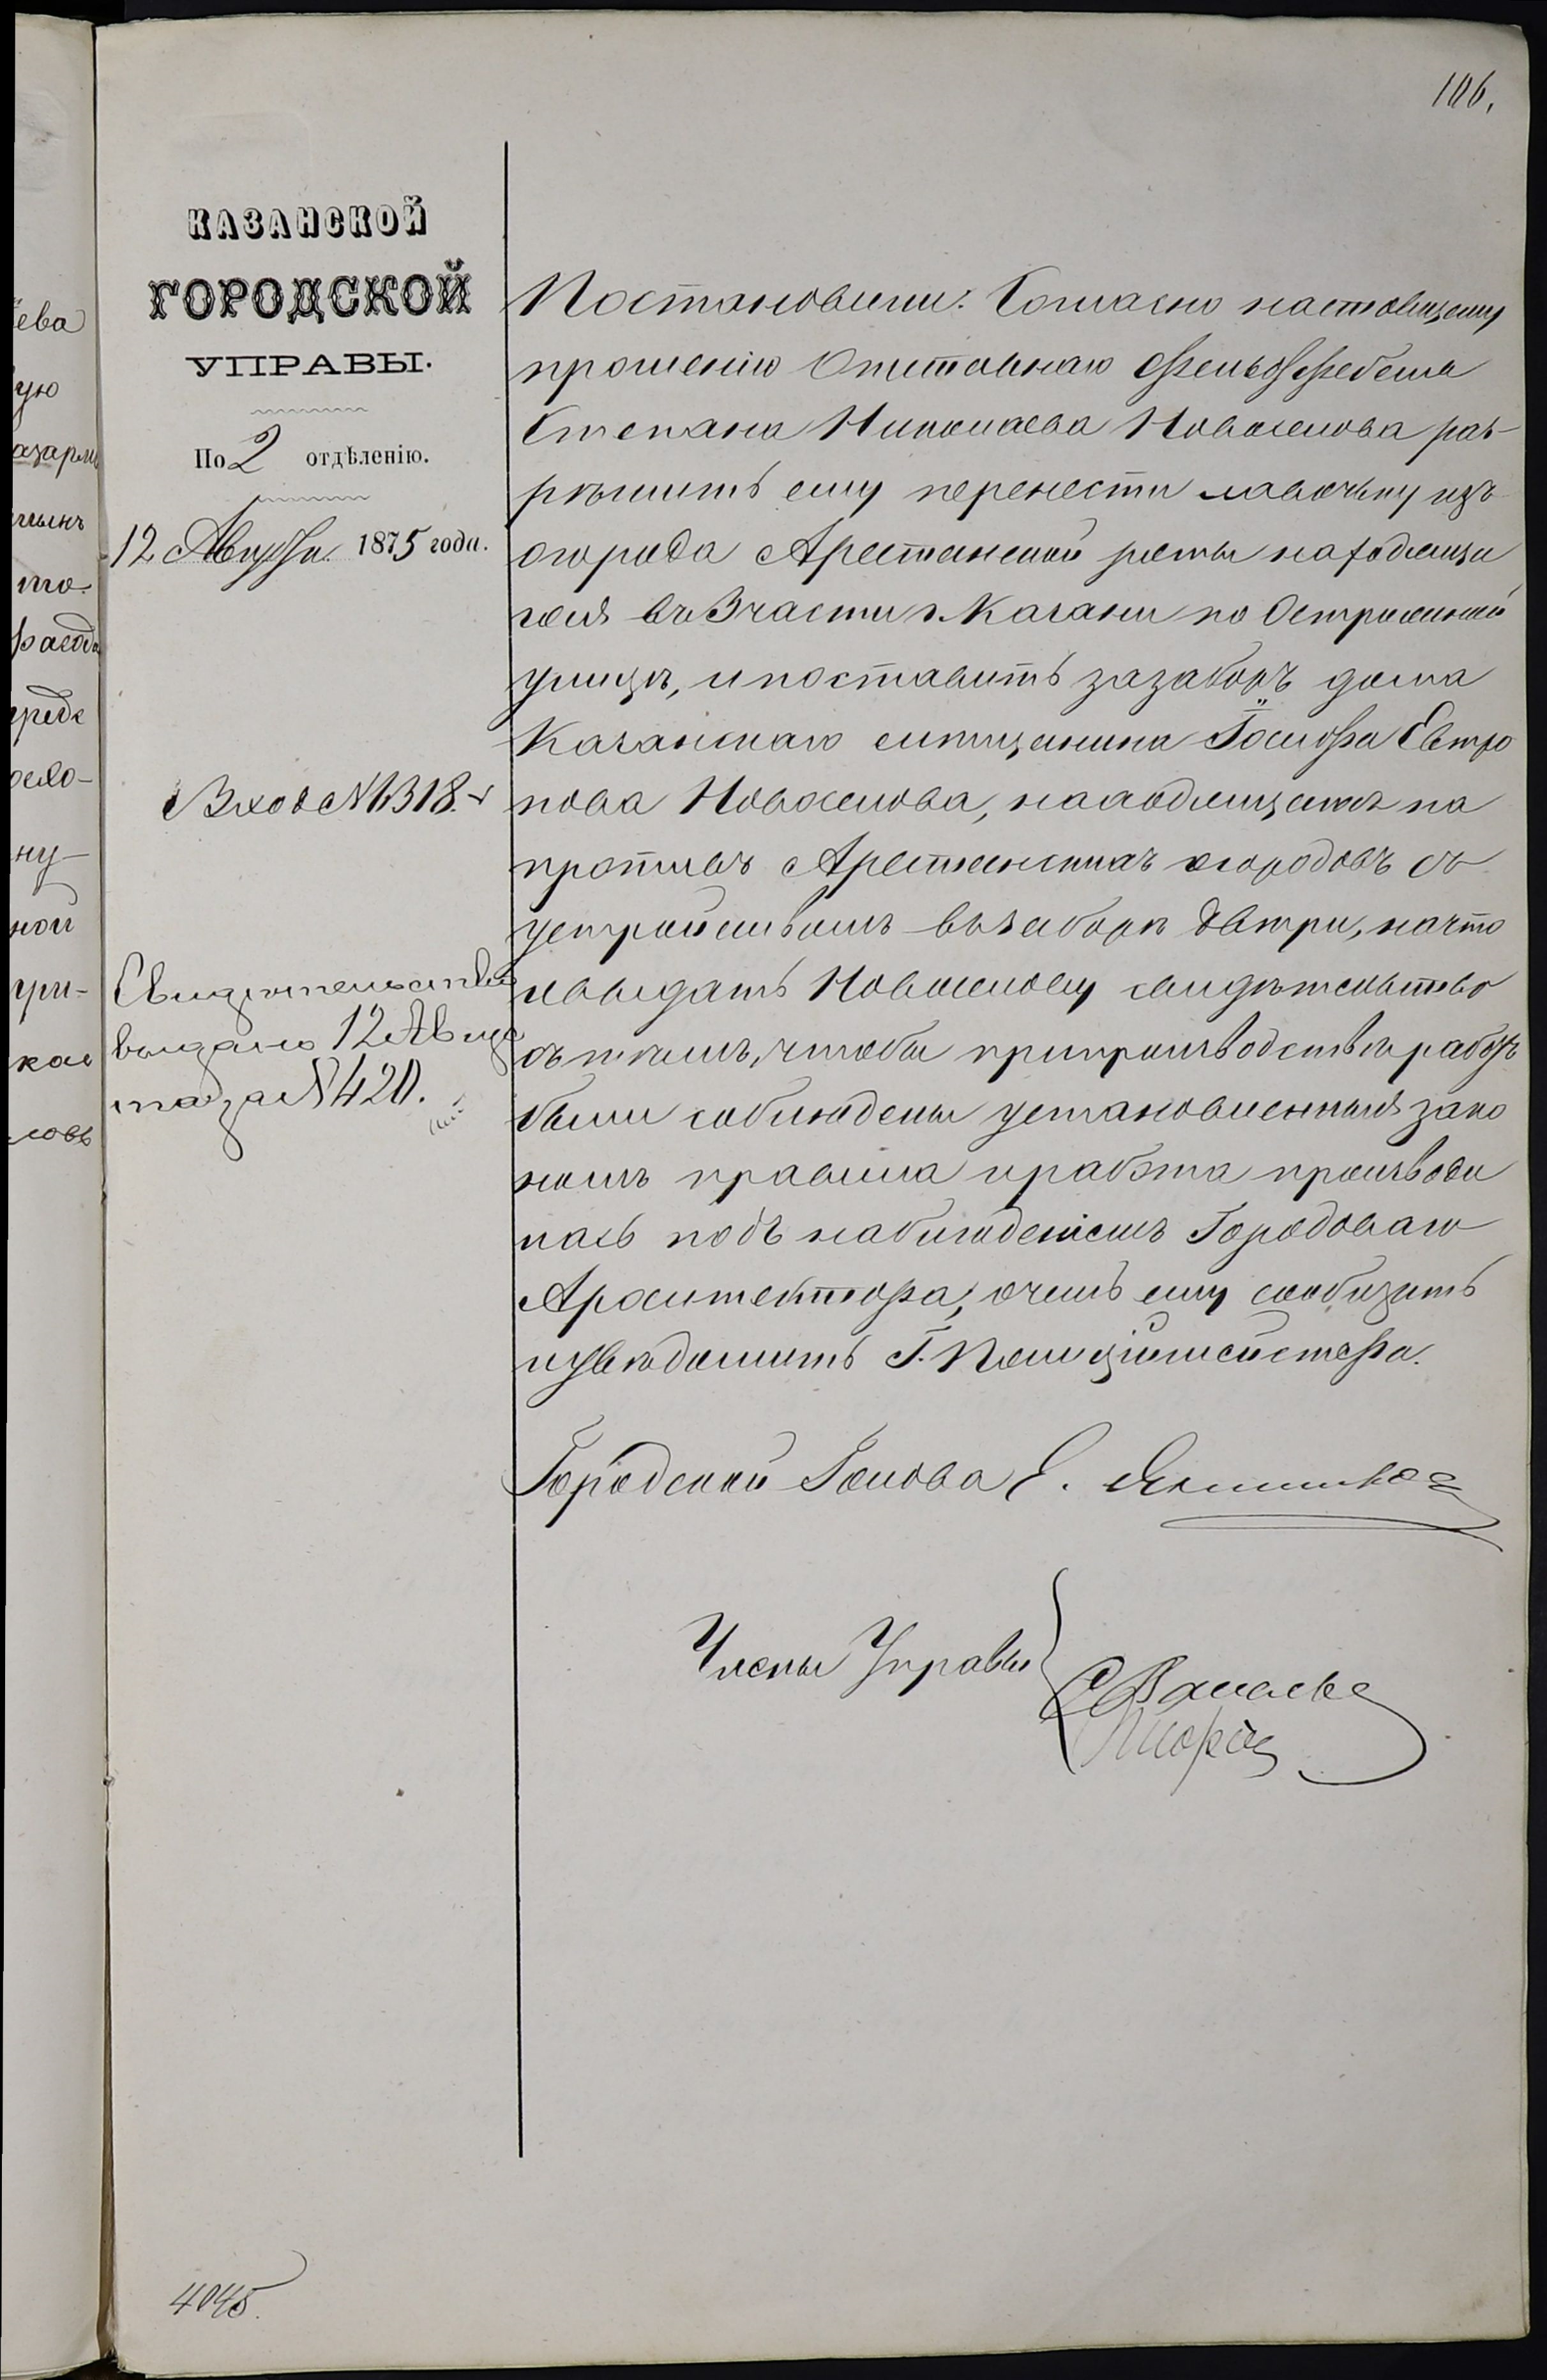 106.
КАЗАНСКОЙ
ГОРОДСКОЙ
УПРАВЫ.
По 2 отдѣленію.
12 Августа 1875 года.
Вход № 6318.
Свидѣтельство
выдано 12 Авгус
та за № 420.
Постановили: Согласно настоящему
прошенію Отставнаго Фельдфебеля
Степана Николаева Новоселова раз-
рѣшить ему перенести лавочку изъ
огорода Арестанской роты находяща
гося въ 3 части г. Казани по Острожной
улицѣ, и поставить за заборъ дома
Казанскаго мѣщанина Іосифа Евтро
пова Новоселова, находящагося на
противъ Арестанскихъ огородовъ съ
устройствомъ въ заборѣ двери, на что
и выдать Новоселову свидѣтельство
съ тѣмъ, чтобы при производствѣ работъ
были соблюдены установленныя зако
номъ правила и работа производи
лась подъ наблюденіемъ Городоваго
Архитектора, о чемъ ему сообщить
и увѣдомить Г. Полиціймейстера.
Городской Голова Е.
Члены Управы
4045.
ева
ую
азарм
то
ну-
ной
при-
кой
ловъ